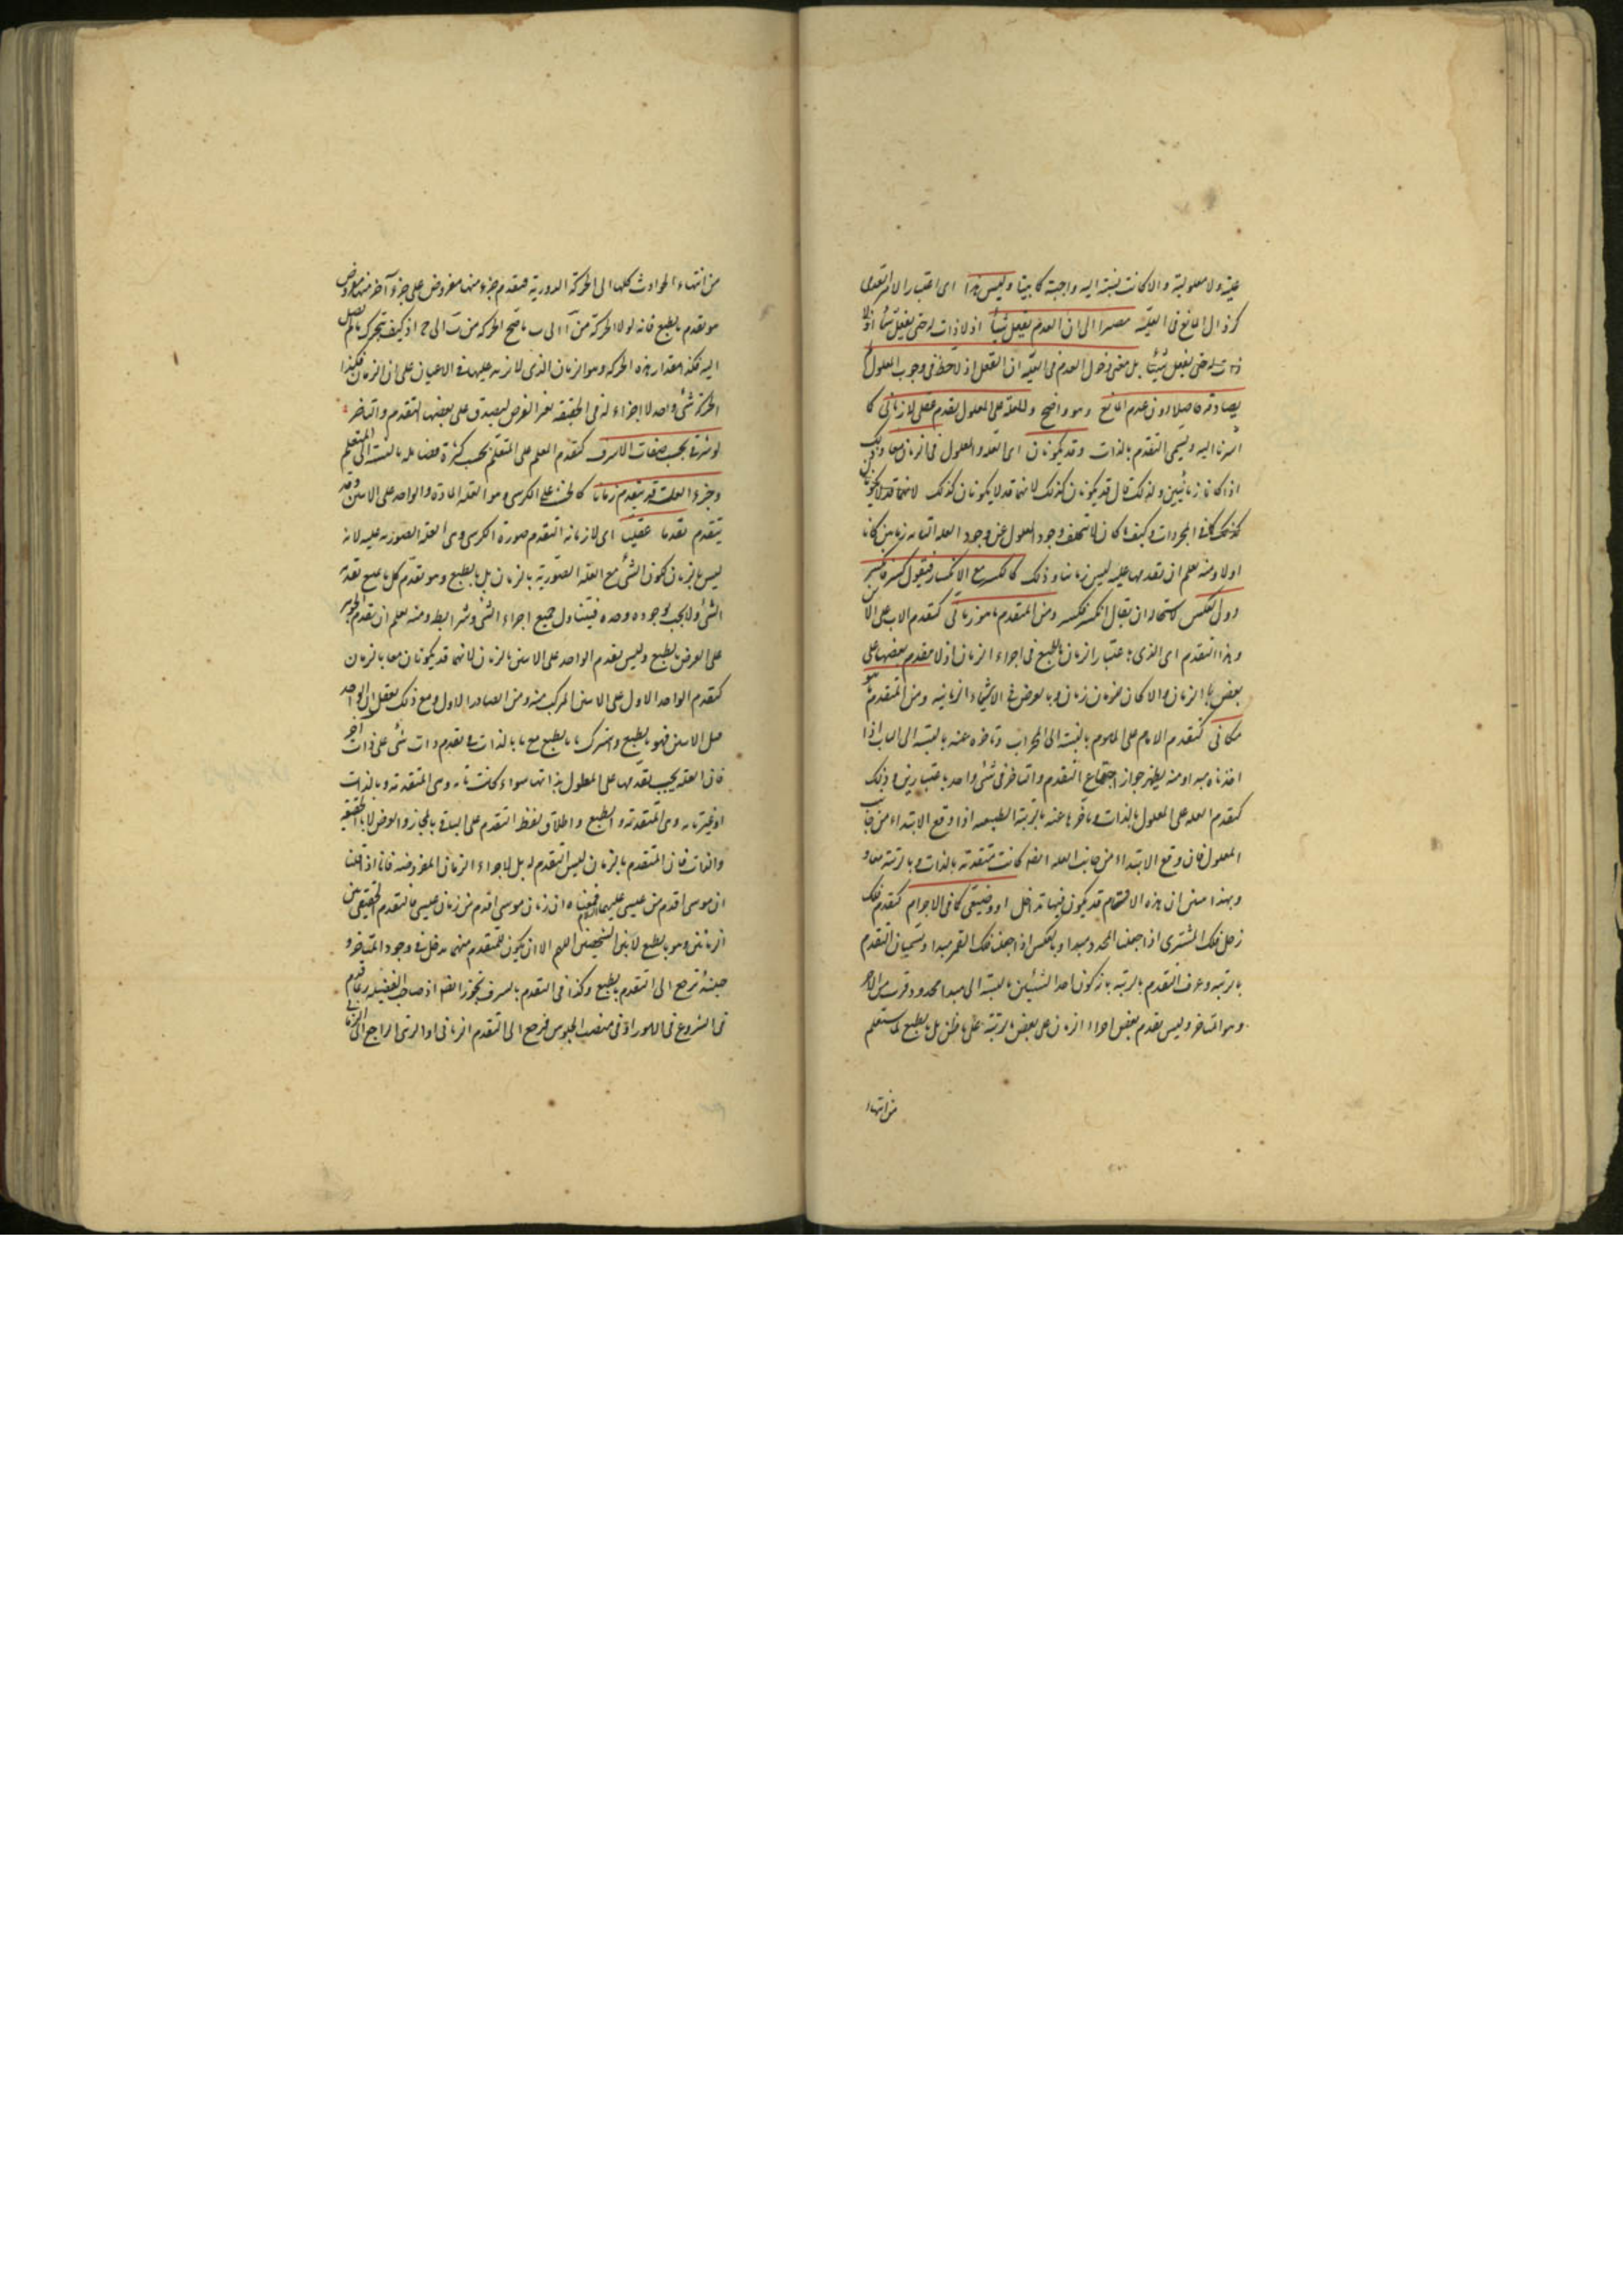 علية ولا معلولية والا كانت نسبته اليه واجبة كما بينا وليس هذا اى اعتبار الامر العدمى
كزوال المانع فى العلية مصيرا الى ان العدم يفعل شيئا اذ لا ذات له حتى يفعل شيئا اذ لا
ذات له حتى يفعل شيئا بل معنى دخول العدم فى العلية ان العقل اذ لاحظ فى وجوب المعلول
يصادفه حاصلا دون عدم المانع وهو واضح وللعلة على المعلول تقدم عقلى لا زمانى كما
اشرنا اليه ويسمى التقدم بالذات وقد يكونان اى العلة والمعلول فى الزمان معا وذلك
اذا كانا زمانيين ولذلك قال قد يكونان كذلك لانهما قد لا يكونان كذلك لانهما قد لا يكونان
كذلك كما فى المجردات وكيف ما كان لا تخلف وجود المعلول عن وجود العلة التامة زمانيين كانا
اولا ومنه يعلم ان تقدمها عليه ليس زمانيا وذلك كالكسر مع الانكسار فيقول كسر فانكسر
دون العكس لاستحالة ان يقال انكسر فكسر ومن المتقدم ما هو زمانى كتقدم الاب على الابن
وهذا التقدم اى الذى باعتبار الزمان بالطبع فى اجزاء الزمان اذ لا تقدم بعضها على
بعض بالزمان والا كان للزمان زمان وبالعرض فى الاشياء الزمانية ومن المتقدم ما هو
مكانى كتقدم الامام على المأموم بالنسبة الى المحراب وتأخره عنه بالنسبة الى الباب اذا
اخذناه مبدا ومنه يظهر جواز اجتماع التقدم والتاخر فى شىء واحد باعتبارين وذلك
كتقدم العلة على المعلول بالذات وتأخرها عنه بالرتبة الطبيعية اذا وقع الابتداء من جانب
المعلول فان وقع الابتداء من جانب العلة ايضا كانت متقدمة بالذات وبالرتبة معا و
بهذا تبين ان هذه الاقسام قد يكون فيها تداخل او وضعيفى كما فى الاجرام كتقدم فلك
زحل فلك المشترى اذا جعلنا المحدد مبدا وبالعكس اذا جعلنا فلك القمر مبدا ويسميان التقدم
بالرتبة وعرف التقدم بالرتبة بانه كون احد الشيئين بالنسبة الى مبدا محدود اقرب من الآخر
وهو المتاخر وليس تقدم بعض اجزاء الزمان على بعض بالرتبة على ما ظن بل بالطبع لما ستعلم
من انتهاء
من انتهاء الحوادث كلها الى الحركة الدورية فتقدم جزء منها مفروض على جزء آخر منها مفروض
هو تقدم بالطبع فانه لولا الحركة من آ الى ب ما صح الحركة من ب الى ج اذ كيف يتحرك ما لم يصل
اليه فكذا مقدار هذه الحركة وهو الزمان الذى لا زيد عليها فى الاعيان على ان الزمان فكذا
الحركة شىء واحد لا اجزاء له فى الحقيقة بغير الفرض ليصدق على بعضها التقدم والتاخر
او شرفى بحسب صفات الاشرف كتقدم المعلم على المتعلم بحسب كثرة فضايله بالنسبة الى المتعلم
وجزء العلة قد يتقدم زمانا كالخشب على الكرسى وهو العلة المادة والواحد على الاثنين وقد
يتقدم تقدما عقليا اى لا زمانه التقدم صورة الكرسى وهى العلة الصورية عليه لانه
ليس بالزمان لكون الشىء مع العلة الصورية بالزمان بل بالطبع وهو تقدم كل ما يمتنع بعدمه
الشىء ولا يجب بوجوده وحده فيتناول جميع اجزاء الشىء وشرايطه ومنه يعلم ان تقدم الجوهر
على العرض بالطبع وليس تقدم الواحد على الاثنين بالزمان لانهما قد يكونان معا بالزمان
كتقدم الواحد الاول على الاثنين المركب منه ومن الصادر الاول ومع ذلك يعقل ان الواحد
قبل الاثنين فهو بالطبع واشترك ما بالطبع مع ما بالذات فى تقدم ذات شىء على ذات آخر
فان العلة يجب تقدمها على المعلول بذاتها سواء كانت تامة وهى المتقدمة وبالذات
او غير تامة وهى المتقدمة بالطبع واطلاق لفظ التقدم على البواقى بالمجاز والعرض لا بالحقيقة
والذات فان المتقدم بالزمان ليس التقدم له بل لاجزاء الزمان المفروضة فانا اذا قلنا
ان موسى اقدم من عيسى عليهما السلام فمعناه ان زمان موسى اقدم من زمان عيسى فالتقدم الحقيقى بين
الزمانين وهو بالطبع لا بين الشخصين اللهم الا ان يكون للمتقدم منهما مدخل فى وجود المتاخر و
حينئذ ترجع الى التقدم بالطبع وكذا فى التقدم بالشرف تجوز ايضا اذ صاحب الفضيلة ربما قدم
فى الشروع فى الامور او فى منصب الجلوس فرجع الى التقدم الزمانى او الرتبى الراجع الى الزمانى